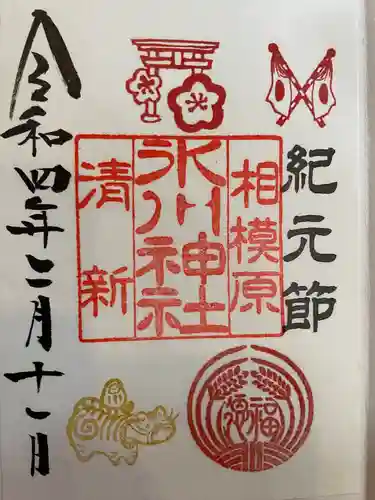 紀元節
相模原
氷川神社
清新
福
令和四年二月十一日